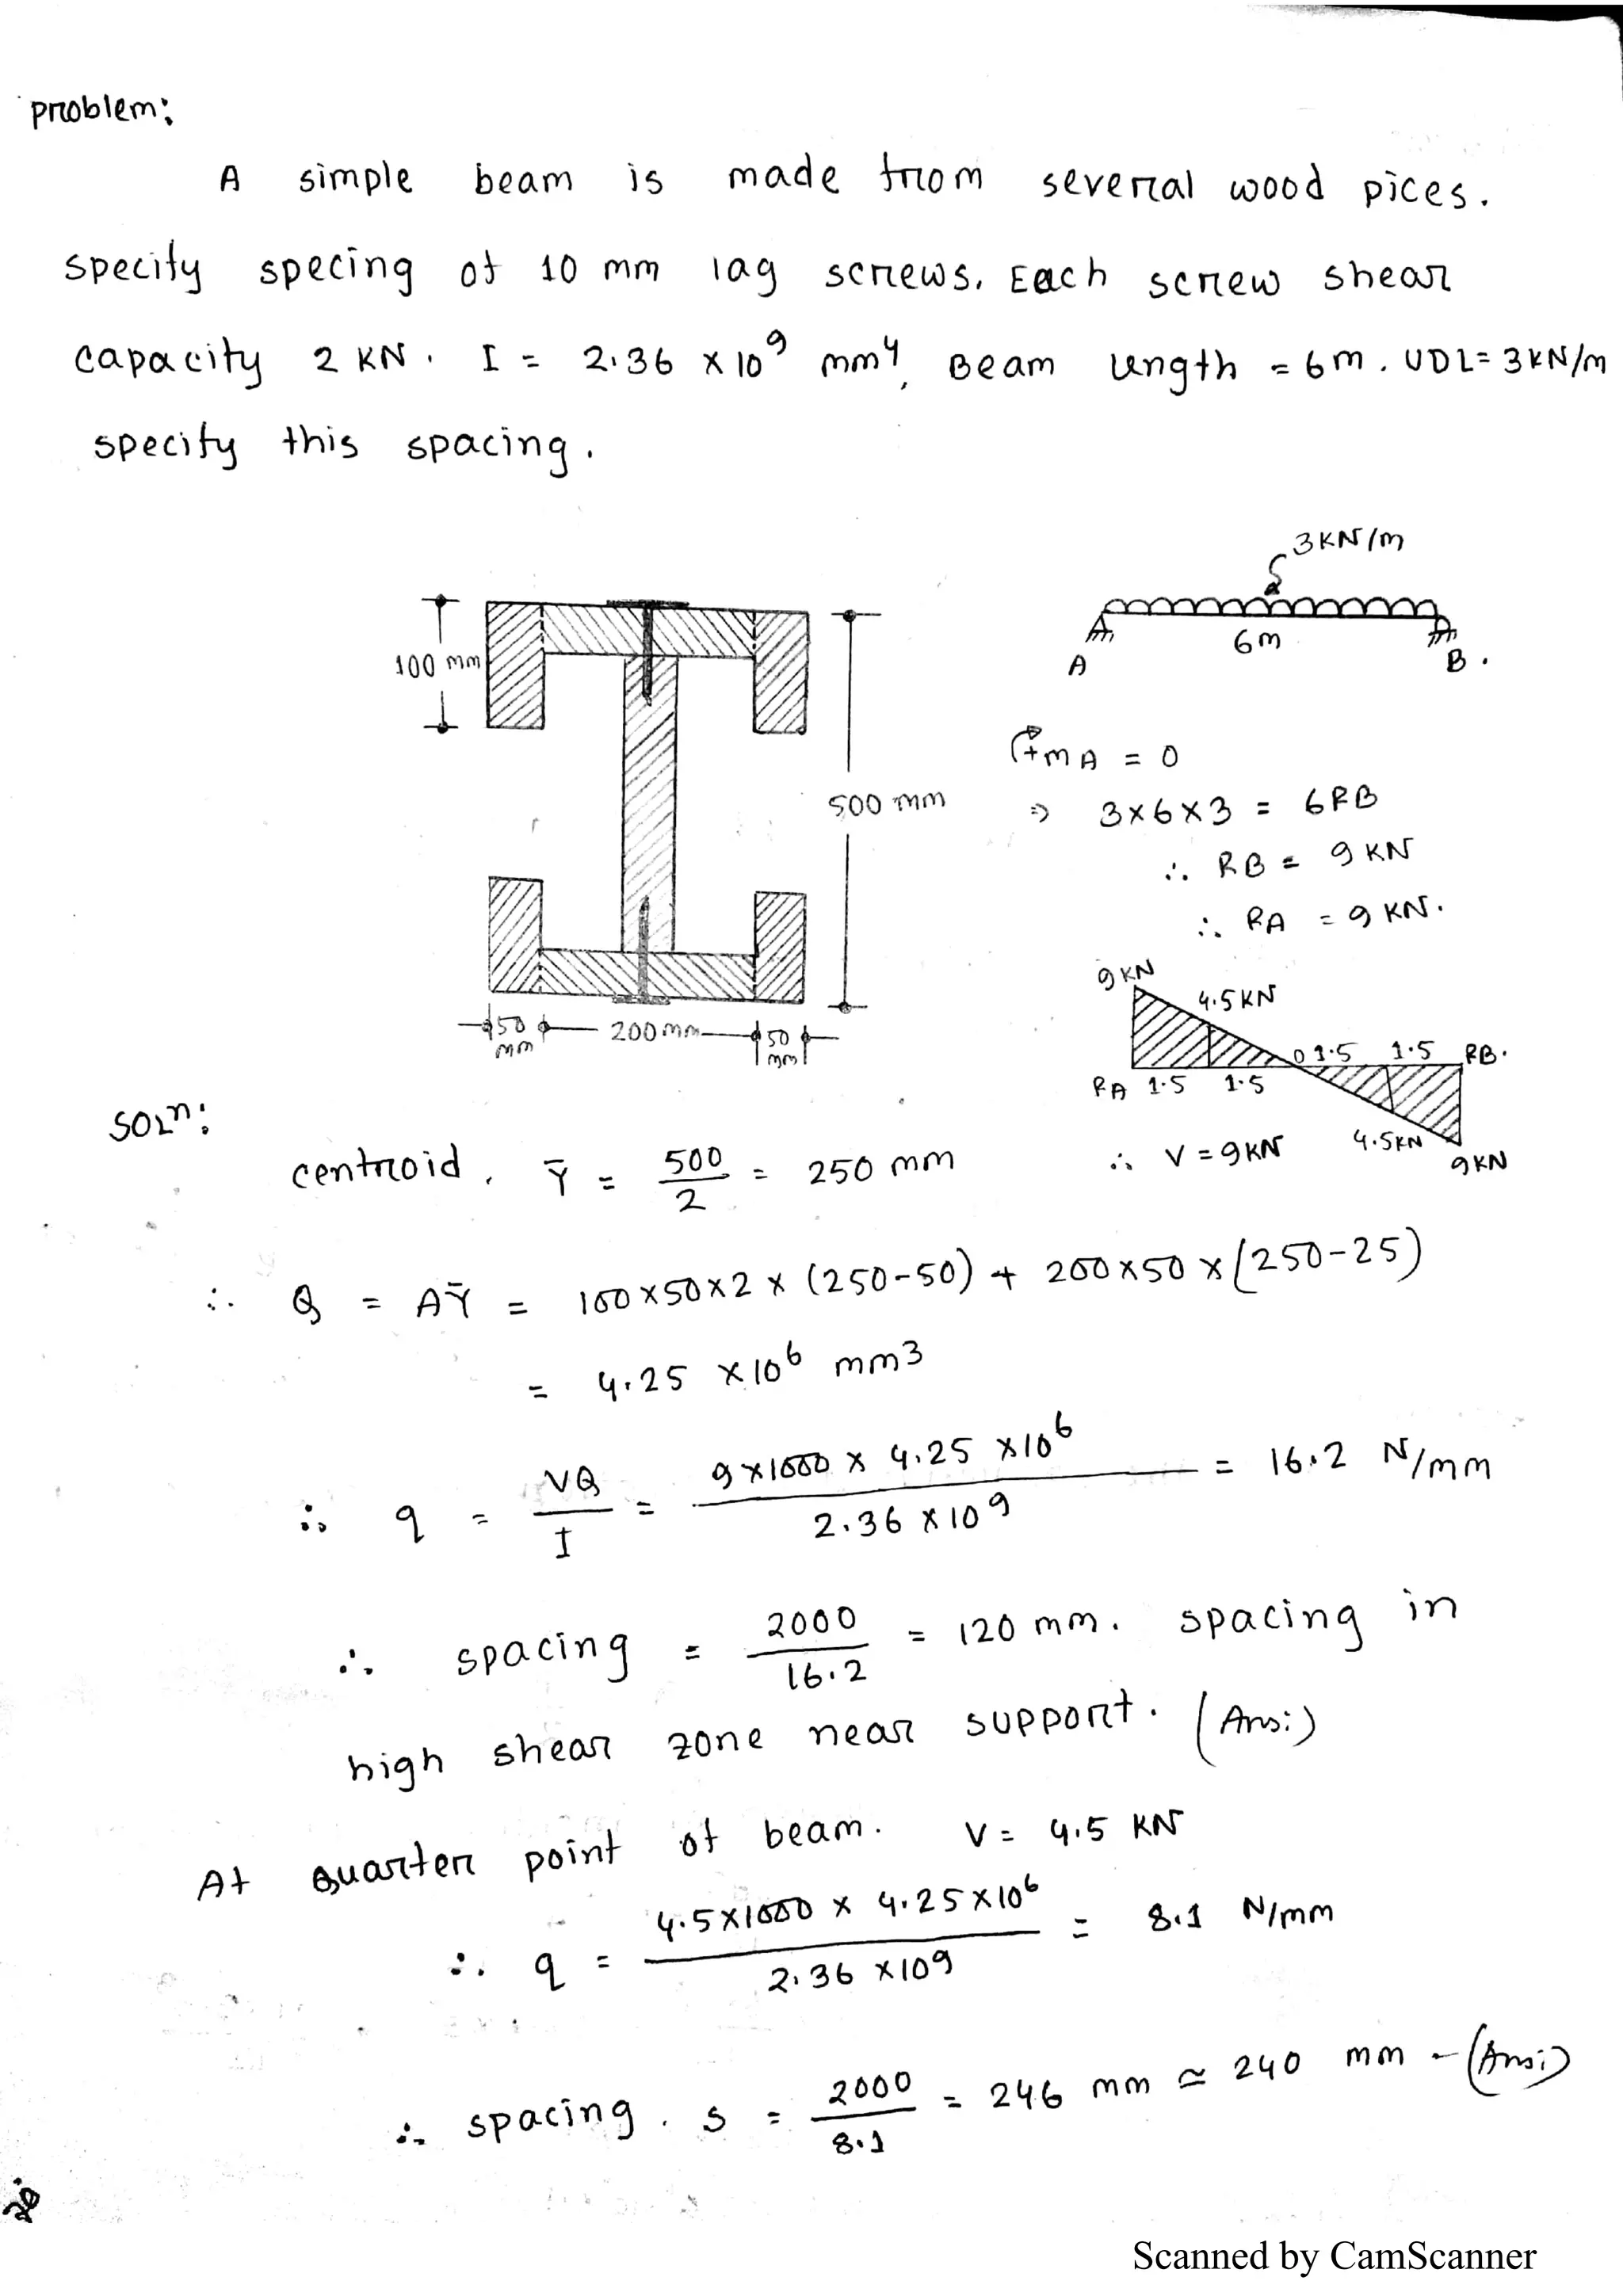 problem:
A simple beam is made from several wood pices.
specify specing of 10 mm lag screws. Each screw shear
capacity 2 KN. I = 2.36 × 10⁹ mm⁴, Beam length = 6m. UDL = 3KN/m
specify this spacing.
3KN/m
6m
A
B.
100 mm
500 mm
50 mm
200mm
50 mm
↻+ mA = 0
⇒ 3×6×3 = 6RB
∴ RB = 9 KN
∴ RA = 9 KN.
9KN
4.5KN
0 1.5 1.5 RB.
RA 1.5 1.5
4.5KN
9KN
∴ V = 9KN
SOLⁿ:
centroid. Ȳ = 500/2 = 250 mm
∴ Q = AȲ = 100×50×2×(250-50) + 200×50×(250-25)
= 4.25 ×10⁶ mm3
∴ q = VQ/I = 9×1000 × 4.25 ×10⁶ / 2.36 ×10⁹ = 16.2 N/mm
∴ spacing = 2000/16.2 = 120 mm. spacing in
high shear zone near support. (Ans:)
At Quarter point of beam. V = 4.5 KN
∴ q = 4.5×1000 × 4.25×10⁶ / 2.36 ×109 = 8.1 N/mm
∴ spacing. s = 2000/8.1 = 246 mm ≃ 240 mm - (Ans:)
Scanned by CamScanner